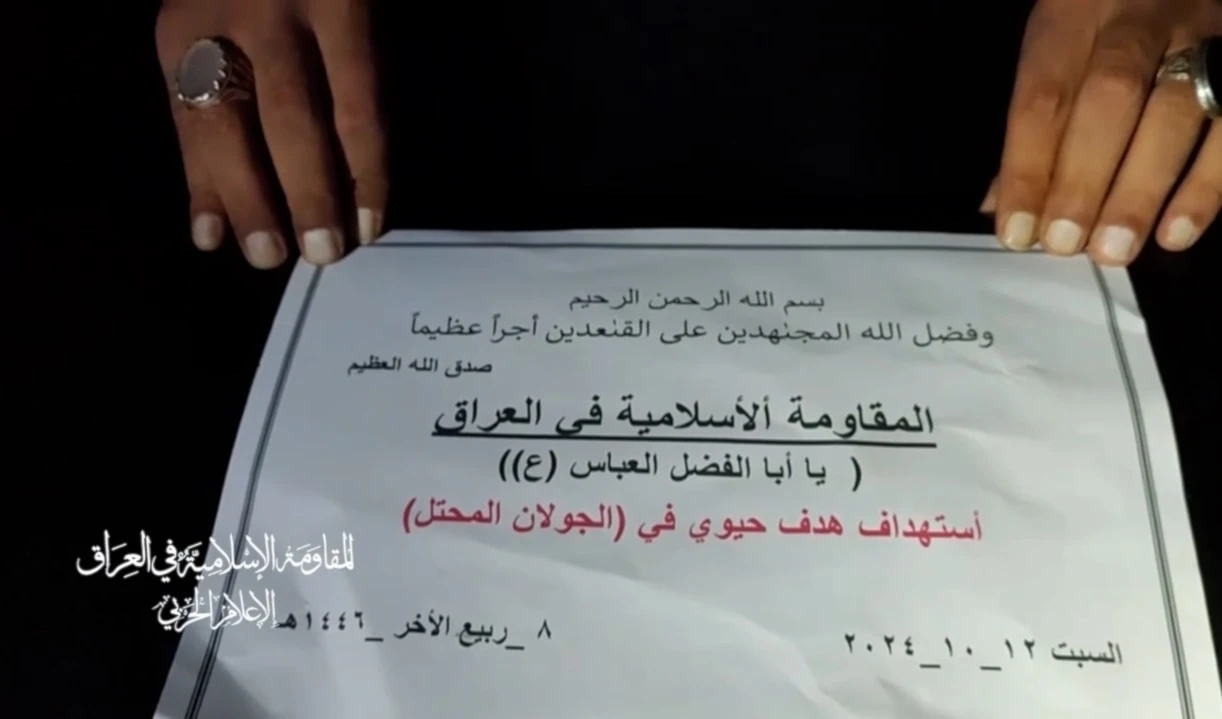 بسم الله الرحمن الرحيم
وفضل الله المجٰنهدين على القٰنعدين أجراً عظيماً
صدق الله العظيم
المقاومة ألأسلامية في العراق
( يا أبا الفضل العباس (ع))
أستهداف هدف حيوي في (الجولان المحتل)
السبت ١٢_١٠_٢٠٢٤
٨ _ربيع الأخر _١٤٤٦هـ
المقاومة الإسلامية في العراق
الإعلام الحربي